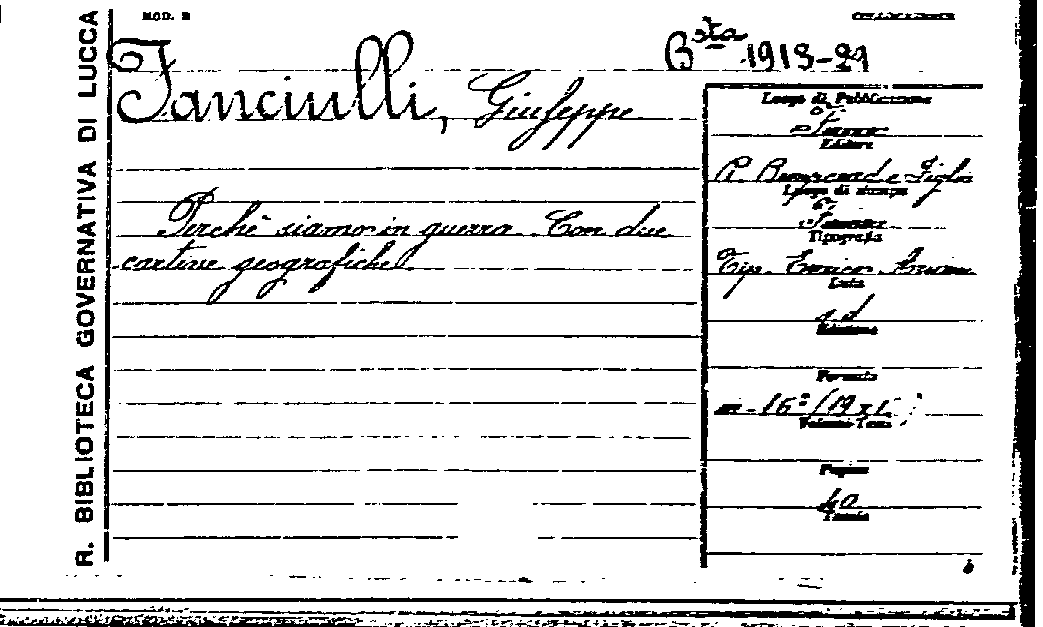 R. BIBLIOTECA GOVERNATIVA DI LUCCA
MOD. B
COLLOCAZIONE
Bsta 1913-29
Fanciulli, Giuseppe
Perchè siamo in guerra. Con due
cartine geografiche.
Luogo di Pubblicazione
Firenze
Editore
R. Bemporad e Figlio
Luogo di stampa
Firenze
Tipografia
Tip. Enrico Ariani
Data
s. d.
Edizione
Formato
in-16° (19 x
Volumi-Tomi
Pagine
40
Tavole